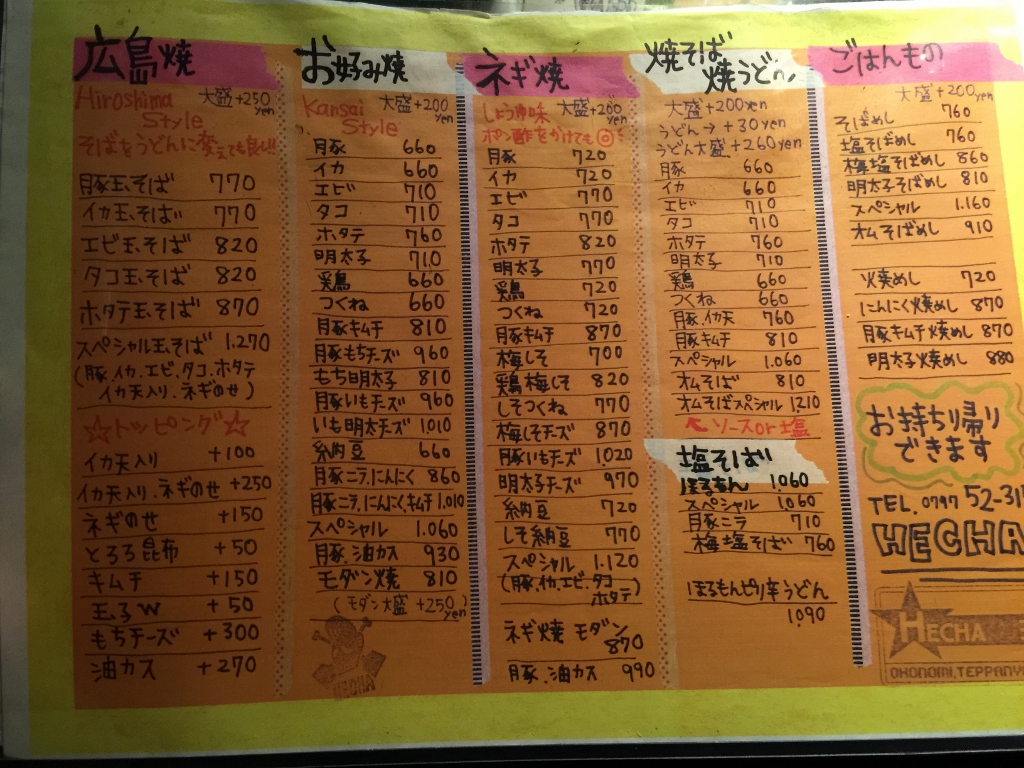 広島焼
Hiroshima Style
大盛+250yen
そばをうどんに変えても良し!!
豚玉、そば 770
イカ玉、そば 770
エビ玉、そば 820
タコ玉、そば 820
ホタテ玉、そば 870
スペシャル玉、そば 1.270
(豚、イカ、エビ、タコ、ホタテ
イカ天入り、ネギのせ)
☆トッピング☆
イカ天入り +100
イカ天入り、ネギのせ +250
ネギのせ +150
とろろ昆布 +50
キムチ +150
玉子W +50
もちチーズ +300
油カス +270
お好み焼
Kansai Style
大盛+200yen
豚 660
イカ 660
エビ 710
タコ 710
ホタテ 760
明太子 710
鶏 660
つくね 660
豚キムチ 810
豚もちチーズ 960
もち明太子 810
豚いもチーズ 960
いも明太チーズ 1010
納豆 660
豚ニラ、にんにく 860
豚ニラ、にんにく、キムチ 1.010
スペシャル 1.060
豚、油カス 930
モダン焼 810
(モダン大盛 +250yen)
HECHA
ネギ焼
しょうゆ味 大盛+200yen
ポン酢をかけても◎!
豚 720
イカ 720
エビ 770
タコ 770
ホタテ 820
明太子 770
鶏 720
つくね 720
豚キムチ 870
梅しそ 700
鶏梅しそ 820
しそつくね 770
梅しそチーズ 870
豚いもチーズ 1020
明太子チーズ 970
納豆 720
しそ納豆 770
スペシャル 1.120
(豚、イカ、エビ、タコ
ホタテ)
ネギ焼 モダン
870
豚、油カス 990
焼そば
焼うどん
大盛+200yen
うどん→+30yen
うどん大盛+260yen
豚 660
イカ 660
エビ 710
タコ 710
ホタテ 760
明太子 710
鶏 660
つくね 660
豚、イカ天 760
豚キムチ 810
スペシャル 1.060
オムそば 810
オムそばスペシャル 1,210
↖ソースor塩
塩そば
ほるもん 1.060
スペシャル 1.060
豚ニラ 710
梅塩そば 760
ほるもんピリ辛うどん
1.090
ごはんもの
大盛+200yen
そばめし 760
塩そばめし 760
梅塩そばめし 860
明太子そばめし 810
スペシャル 1.160
オムそばめし 910
焼めし 720
にんにく焼めし 870
豚キムチ焼めし 870
明太子焼めし 880
お持ち帰り
できます
TEL.0797 52-31
HECHA
HECHA
OKONOMI,TEPPANY